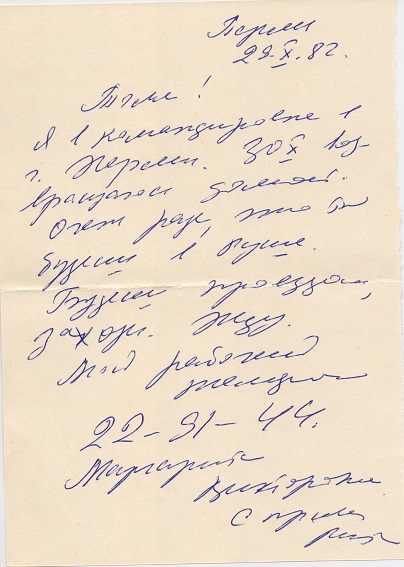 Пермь
29.X.82г.
Толя!
Я в командировке в
г. Перми. 30 X воз-
вращаюсь домой.
Очень рад, что ты
будешь в
Будешь проездом,
заходи. Жду.
Мой рабочий
телефон
22-91-44.
Маргарита
Викторовна
С